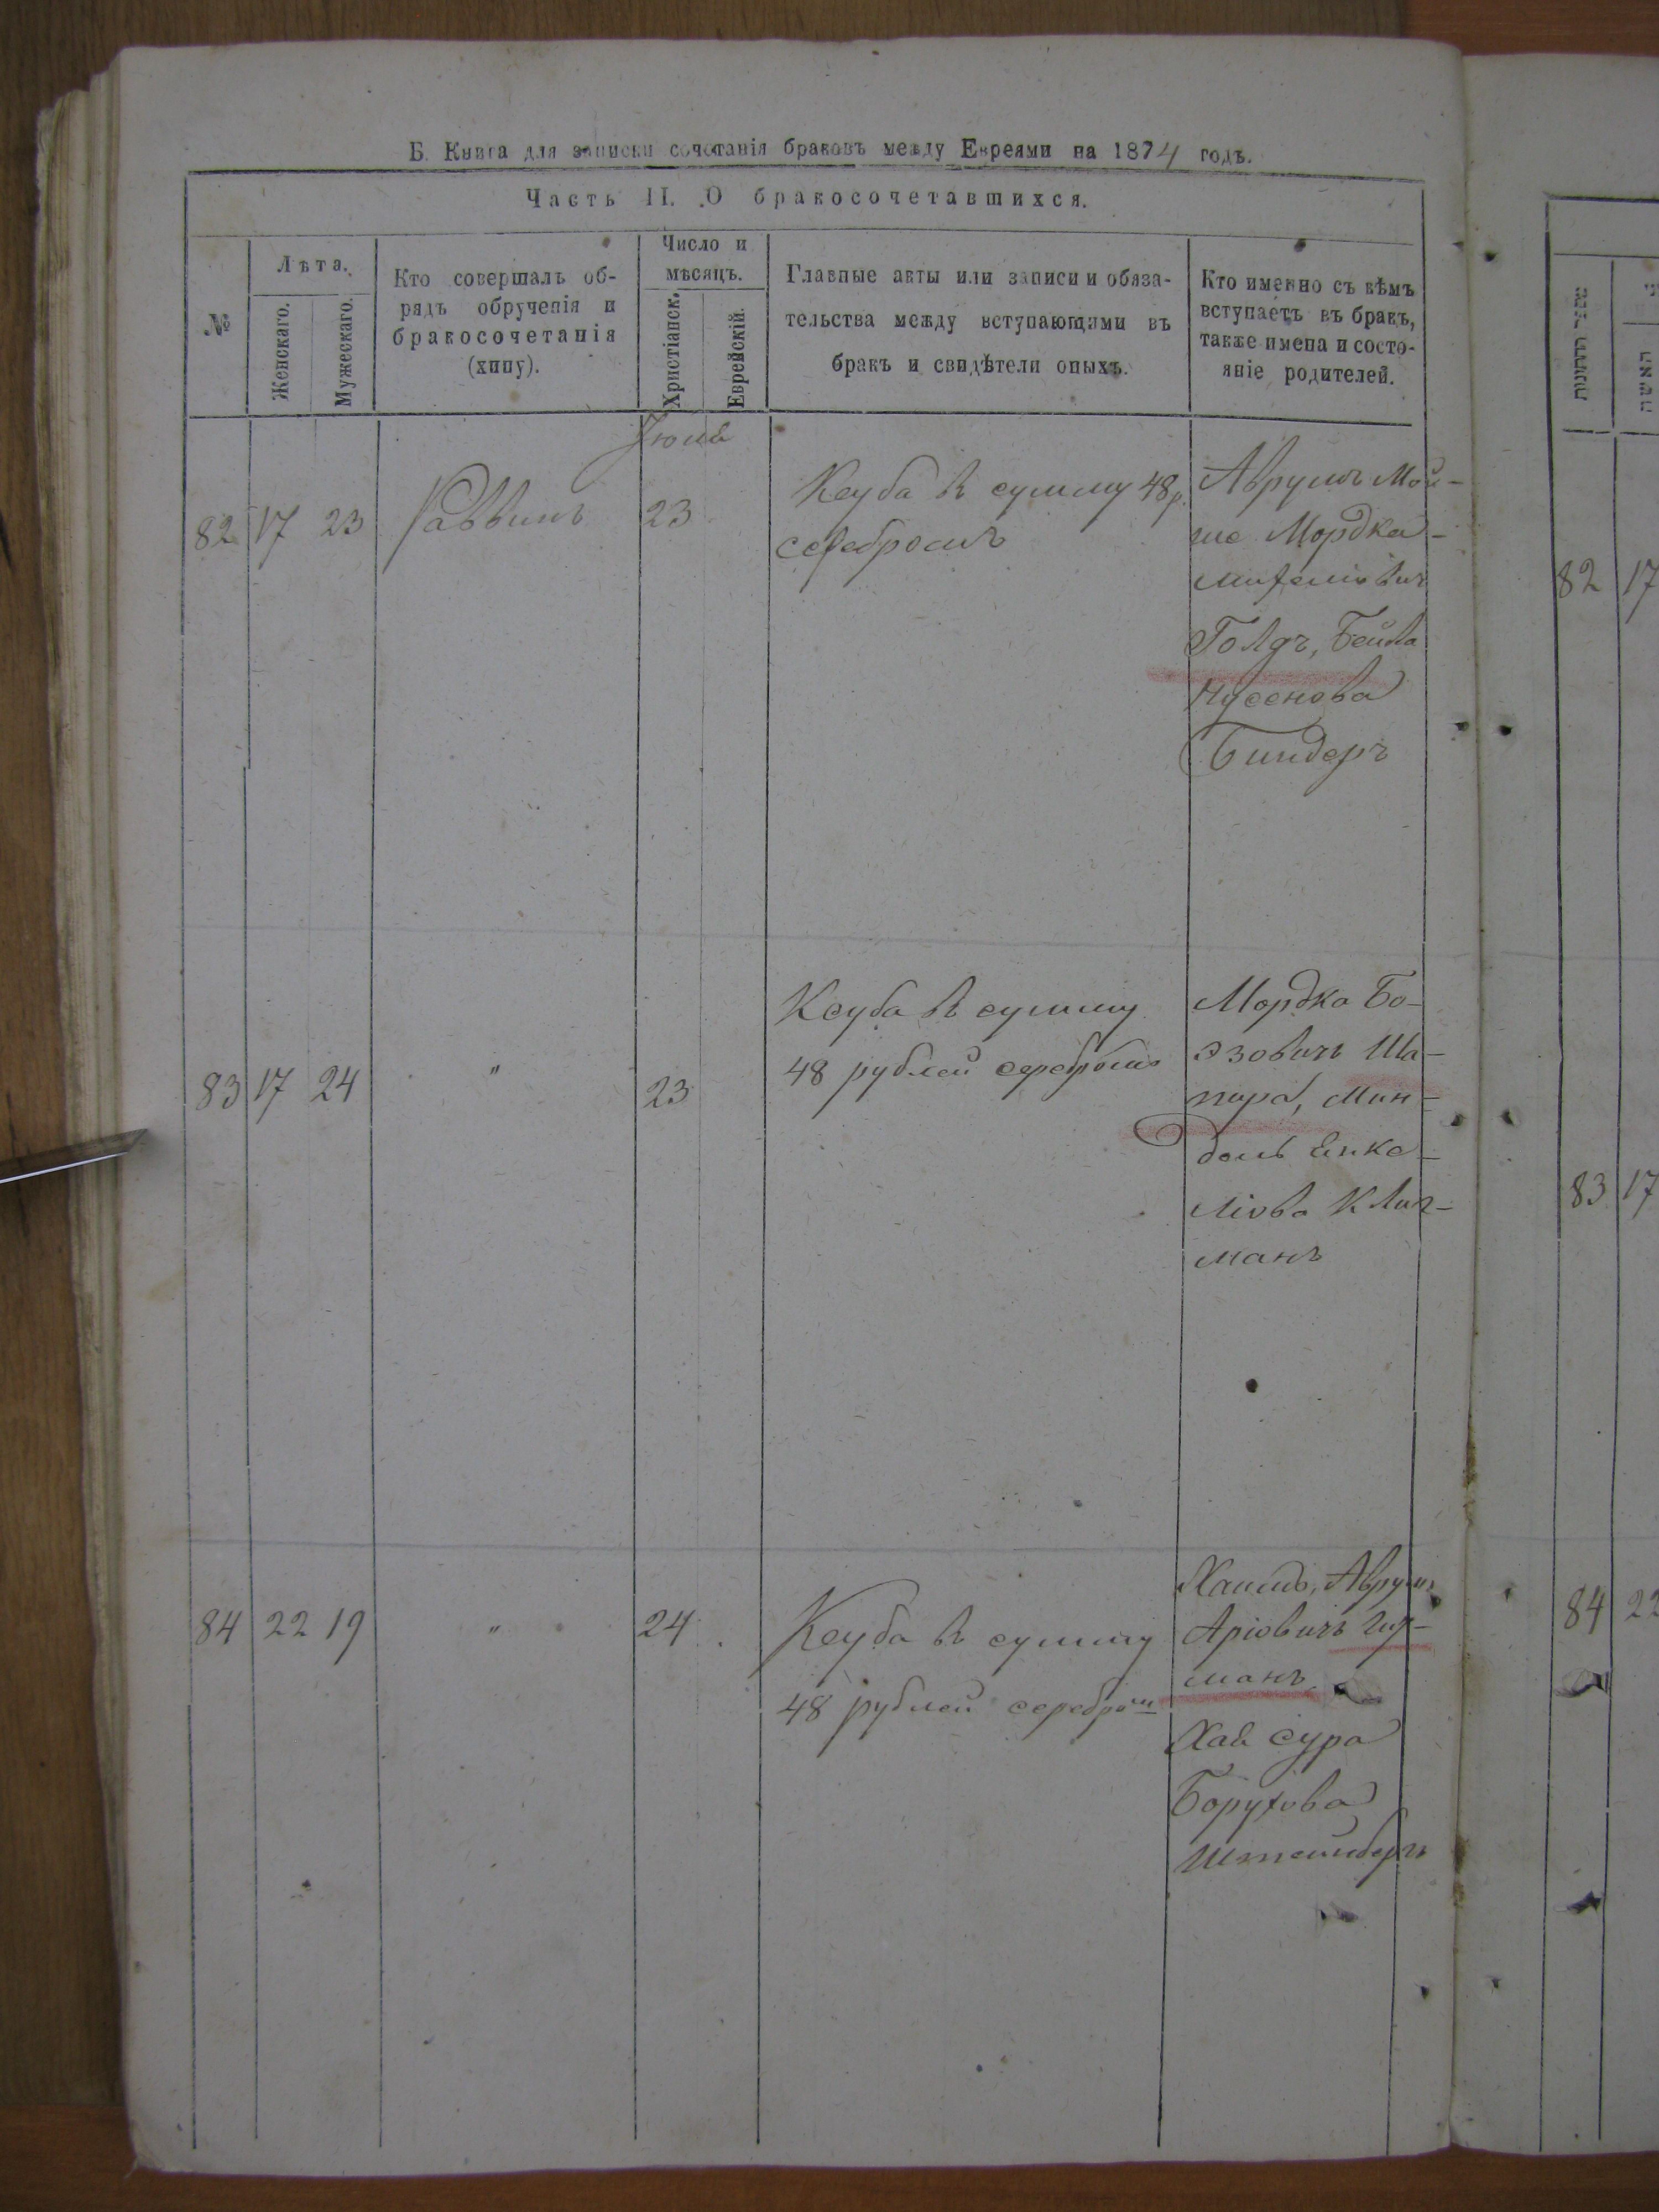 Б. Книга для записки сочетанія браковъ между Евреями на 1874 годъ.
Часть II. О бракосочетавшихся.
№
Лѣта.
Женскаго.
Мужескаго.
Кто совершалъ об-
рядъ обрученія и
бракосочетанія
(хипу).
Число и
мѣсяцъ.
Христіанск.
Еврейскій.
Главные акты или записи и обяза-
тельства между вступающими въ
бракъ и свидѣтели оныхъ.
Кто именно съ кѣмъ
вступаетъ въ бракъ,
также имена и состо-
яніе родителей.
82 17 23 Раввинъ 23
Ксуба въ сумму 48 р.
серебромъ
Аврумъ Мой-
ше Мордка-
Голдъ, Бейла
Нусенова
Биндеръ
83 17 24 " 23
Ксуба въ сумму
48 рублей серебромъ
Мордко Бо-
эзовичъ Ша-
пира, Мин-
дель Енке-
ліова Клиг-
манъ
84 22 19 " 24
Ксуба въ сумму
48 рублей серебром
Хаимъ, Аврумъ
Аріовичъ Гит-
манъ
Хая Сура
Борухова
Штейнбергъ
82 17
83 17
84 22